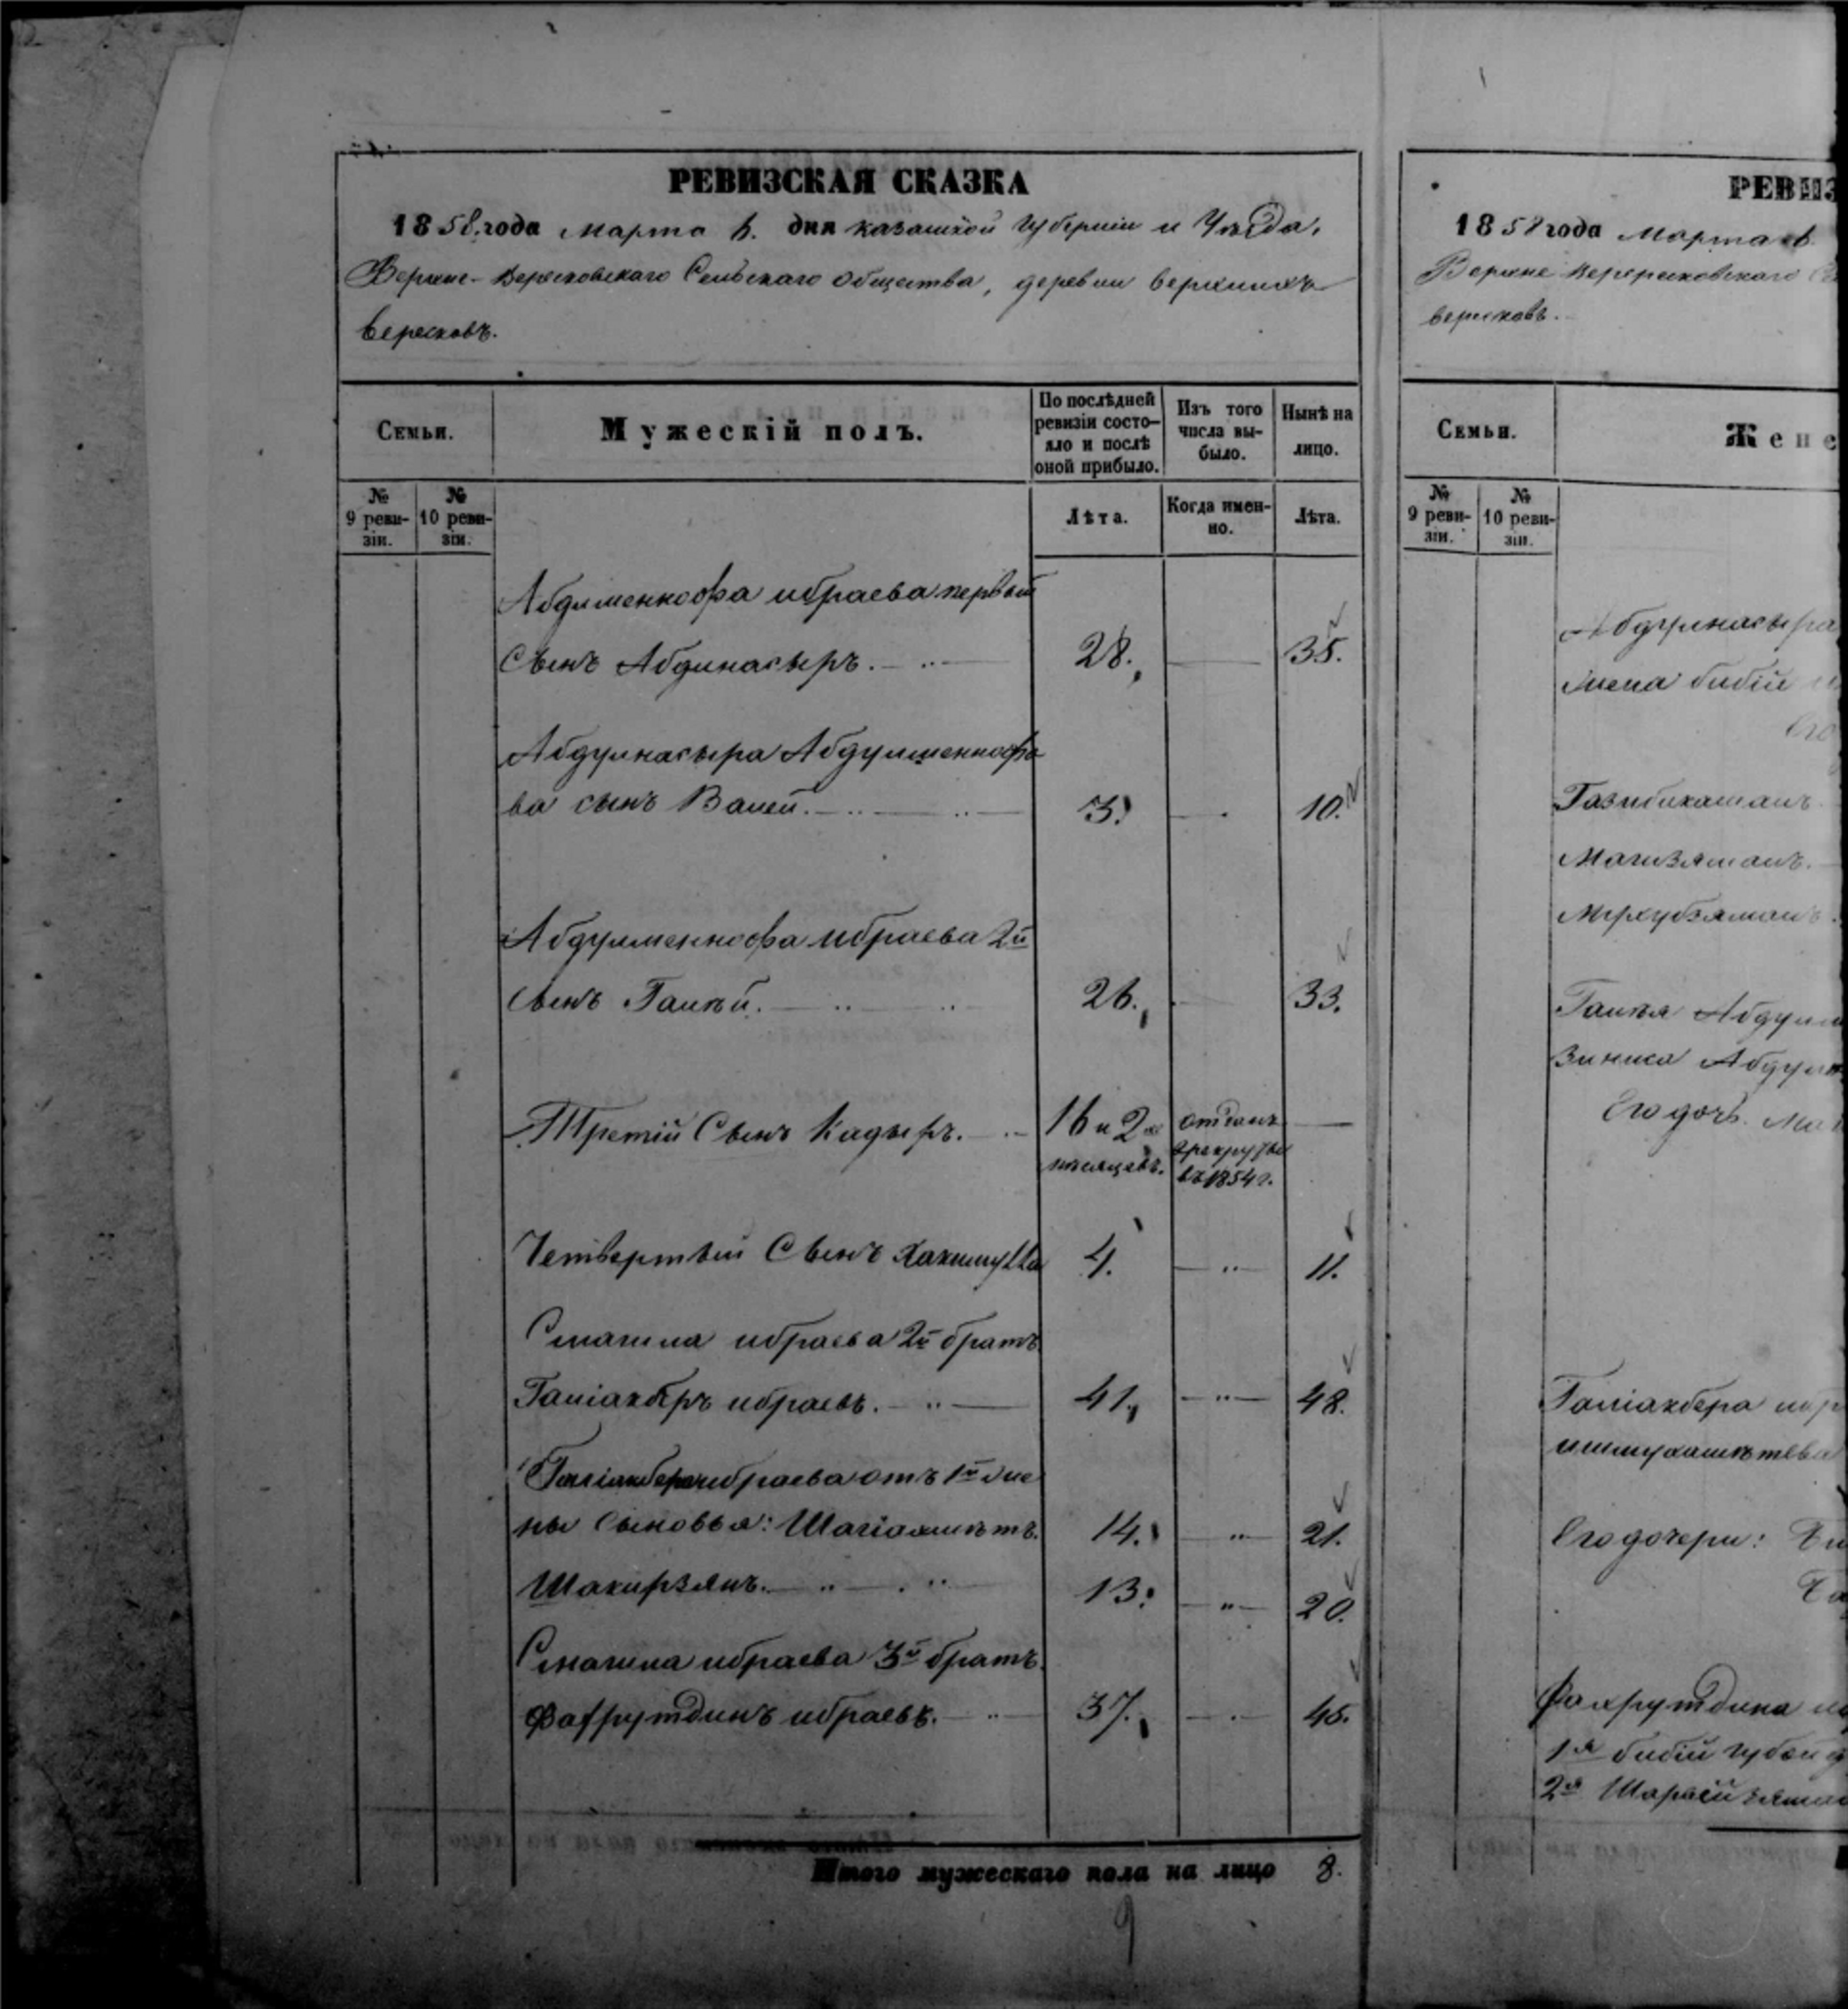 РЕВИЗСКАЯ СКАЗКА
1858 года Марта 6. дня казанской губернии и Уезда,
Верхне-Вересковскаго Сельскаго общества, деревни верхнихъ
Вересковъ.
Семьи.
Мужескій полъ.
По послѣдней ревизіи состояло и послѣ оной прибыло.
Изъ того числа выбыло.
Нынѣ на лицо.
№ 9 ревизіи.
№ 10 ревизіи.
Лѣта.
Когда именно.
Лѣта.
Абдулменнофа ибраева первый
Сынъ Абдулнасыръ. 28. 35.
Абдулнасыра Абдулменнофо
ва сынъ Валей. 3. 10.
Абдулменнофа ибраева 2й
Сынъ Галѣй. 26. 33.
Третій Сынъ Кадыръ. 16 и 2 месяцевъ. отданъ въ рекруты въ 1854 г.
Четвертый Сынъ Хакимулла 4. 11.
Смагила ибраева 2й братъ
Галіакберъ ибраевъ. 41. 48.
Галіакбера ибраева отъ 1й же
ны сыновья: Шагіахметъ. 14. 21.
Шакирзянъ. 13. 20.
Смагила ибраева 3й братъ
Фахрутдинъ ибраевъ. 37. 45.
Итого мужескаго пола на лицо 8.
9
РЕВИЗ
1858 года Марта 6.
Верхне
вересковъ.
Семьи.
Жене
№ 9 ревизіи.
№ 10 ревизіи.
Абдулнасыра
жена бибій
Его
Магизяманъ.
Галѣя Абдулм
Его дочь
Галіакбера ибр
Его дочери:
Фахрутдина
1я бибій
2я